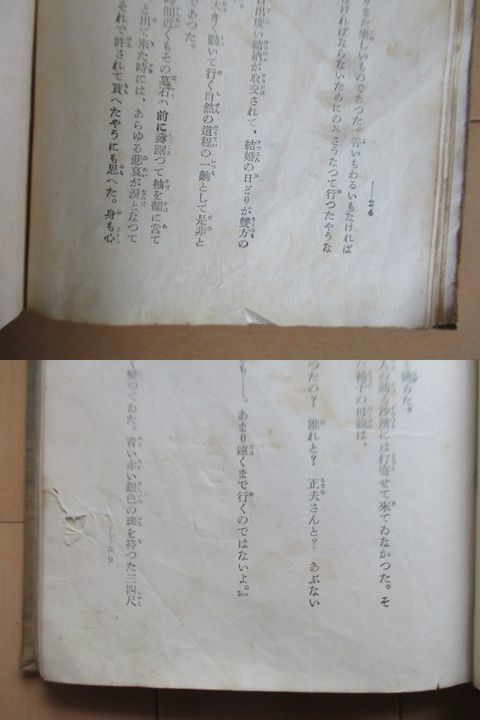 また樂しいものであつた。善いもわるいもなければ
なければならないためにのみさうたつて行つたやうな
結納が取交されて、結婚の日どりが雙方の
大きう動いて行く自然の道程の一齣として是非と
であつた。
くもその墓石の前に蹲踞つて袖を額に當て
と出て來た時には、あらゆる悲哀が涙となつて
それで許されて貰へたやうにも思へた。身も心
24
めた。
沙濱には打寄せて來てゐなかつた。そ
子の母親は、
つたの？　誰れと？　正夫さんと？　あぶない
も――。あまり遠くまで行くのではないよ。』
つてゐた。青い赤い銀色の斑を持つた三四尺
59